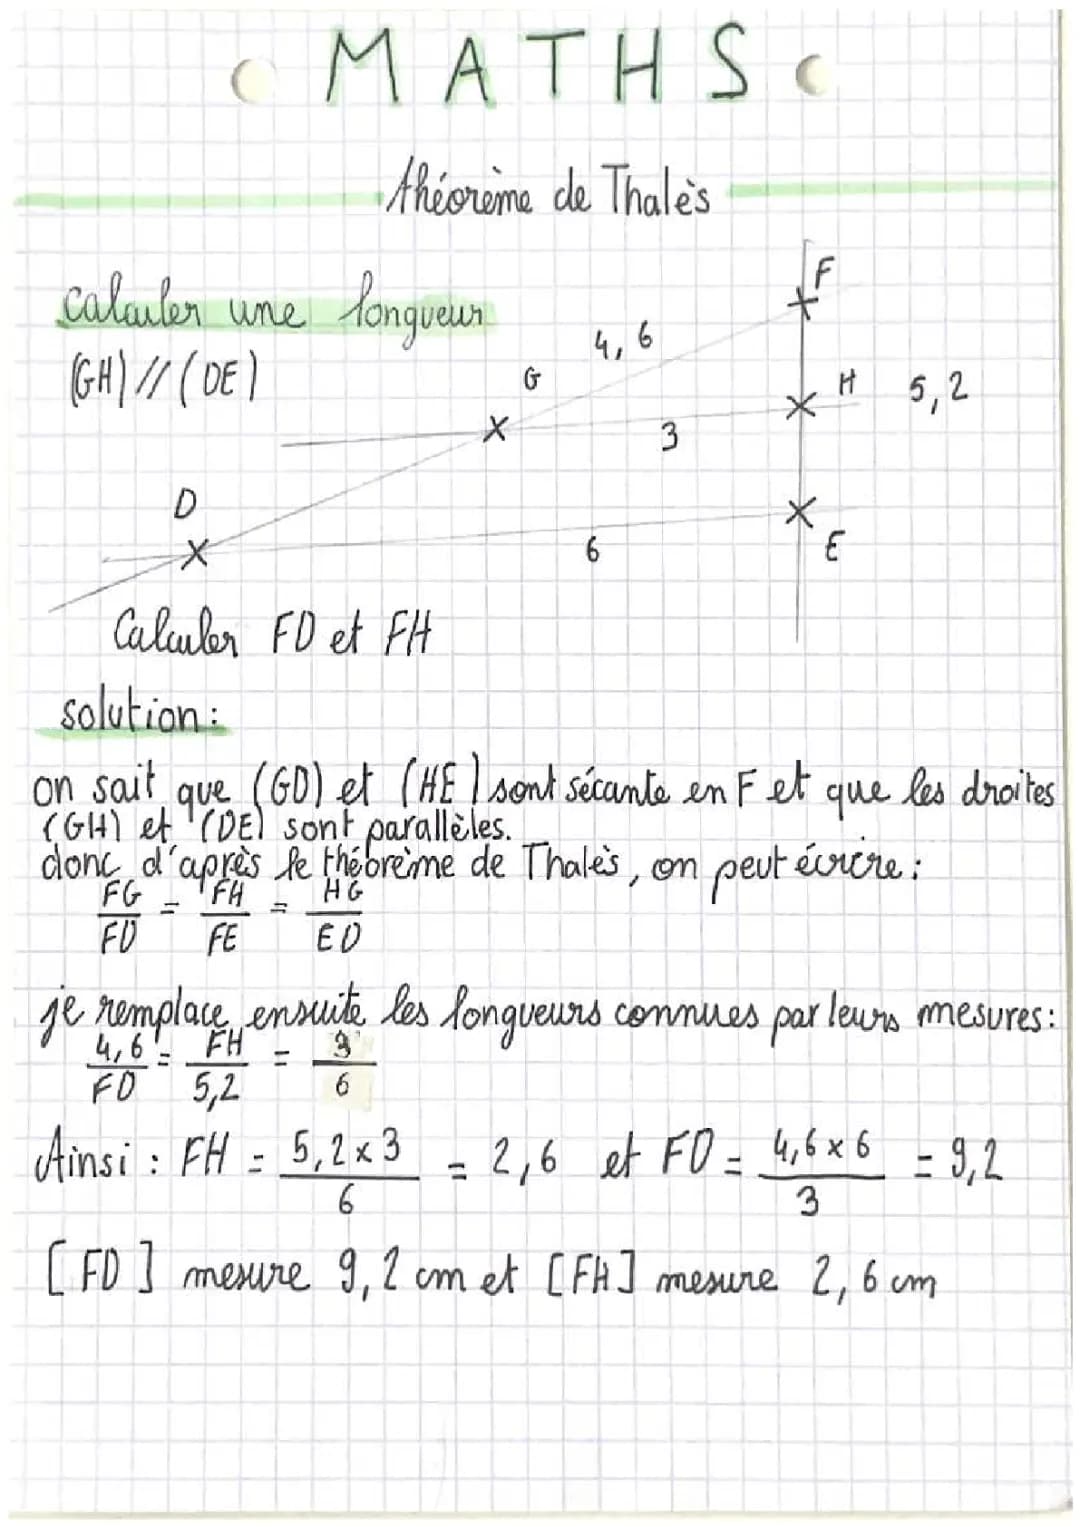 MATHS
théorème de Thalès
calculer une longueur
(GH) // (DE)
F
4,6
G
H
5,2
3
D
6
E
Calculer FD et FH
solution :
on sait que (GD) et (HE) sont sécante en F et que les droites
(GH) et (DE) sont parallèles.
donc d'après le théorème de Thalès, on peut écrire :
FG/FD = FH/FE = HG/ED
je remplace ensuite les longueurs connues par leurs mesures :
4,6/FD = FH/5,2 = 3/6
Ainsi : FH = 5,2 x 3/6 = 2,6 et FD = 4,6 x 6/3 = 9,2
[FD] mesure 9,2 cm et [FH] mesure 2,6 cm